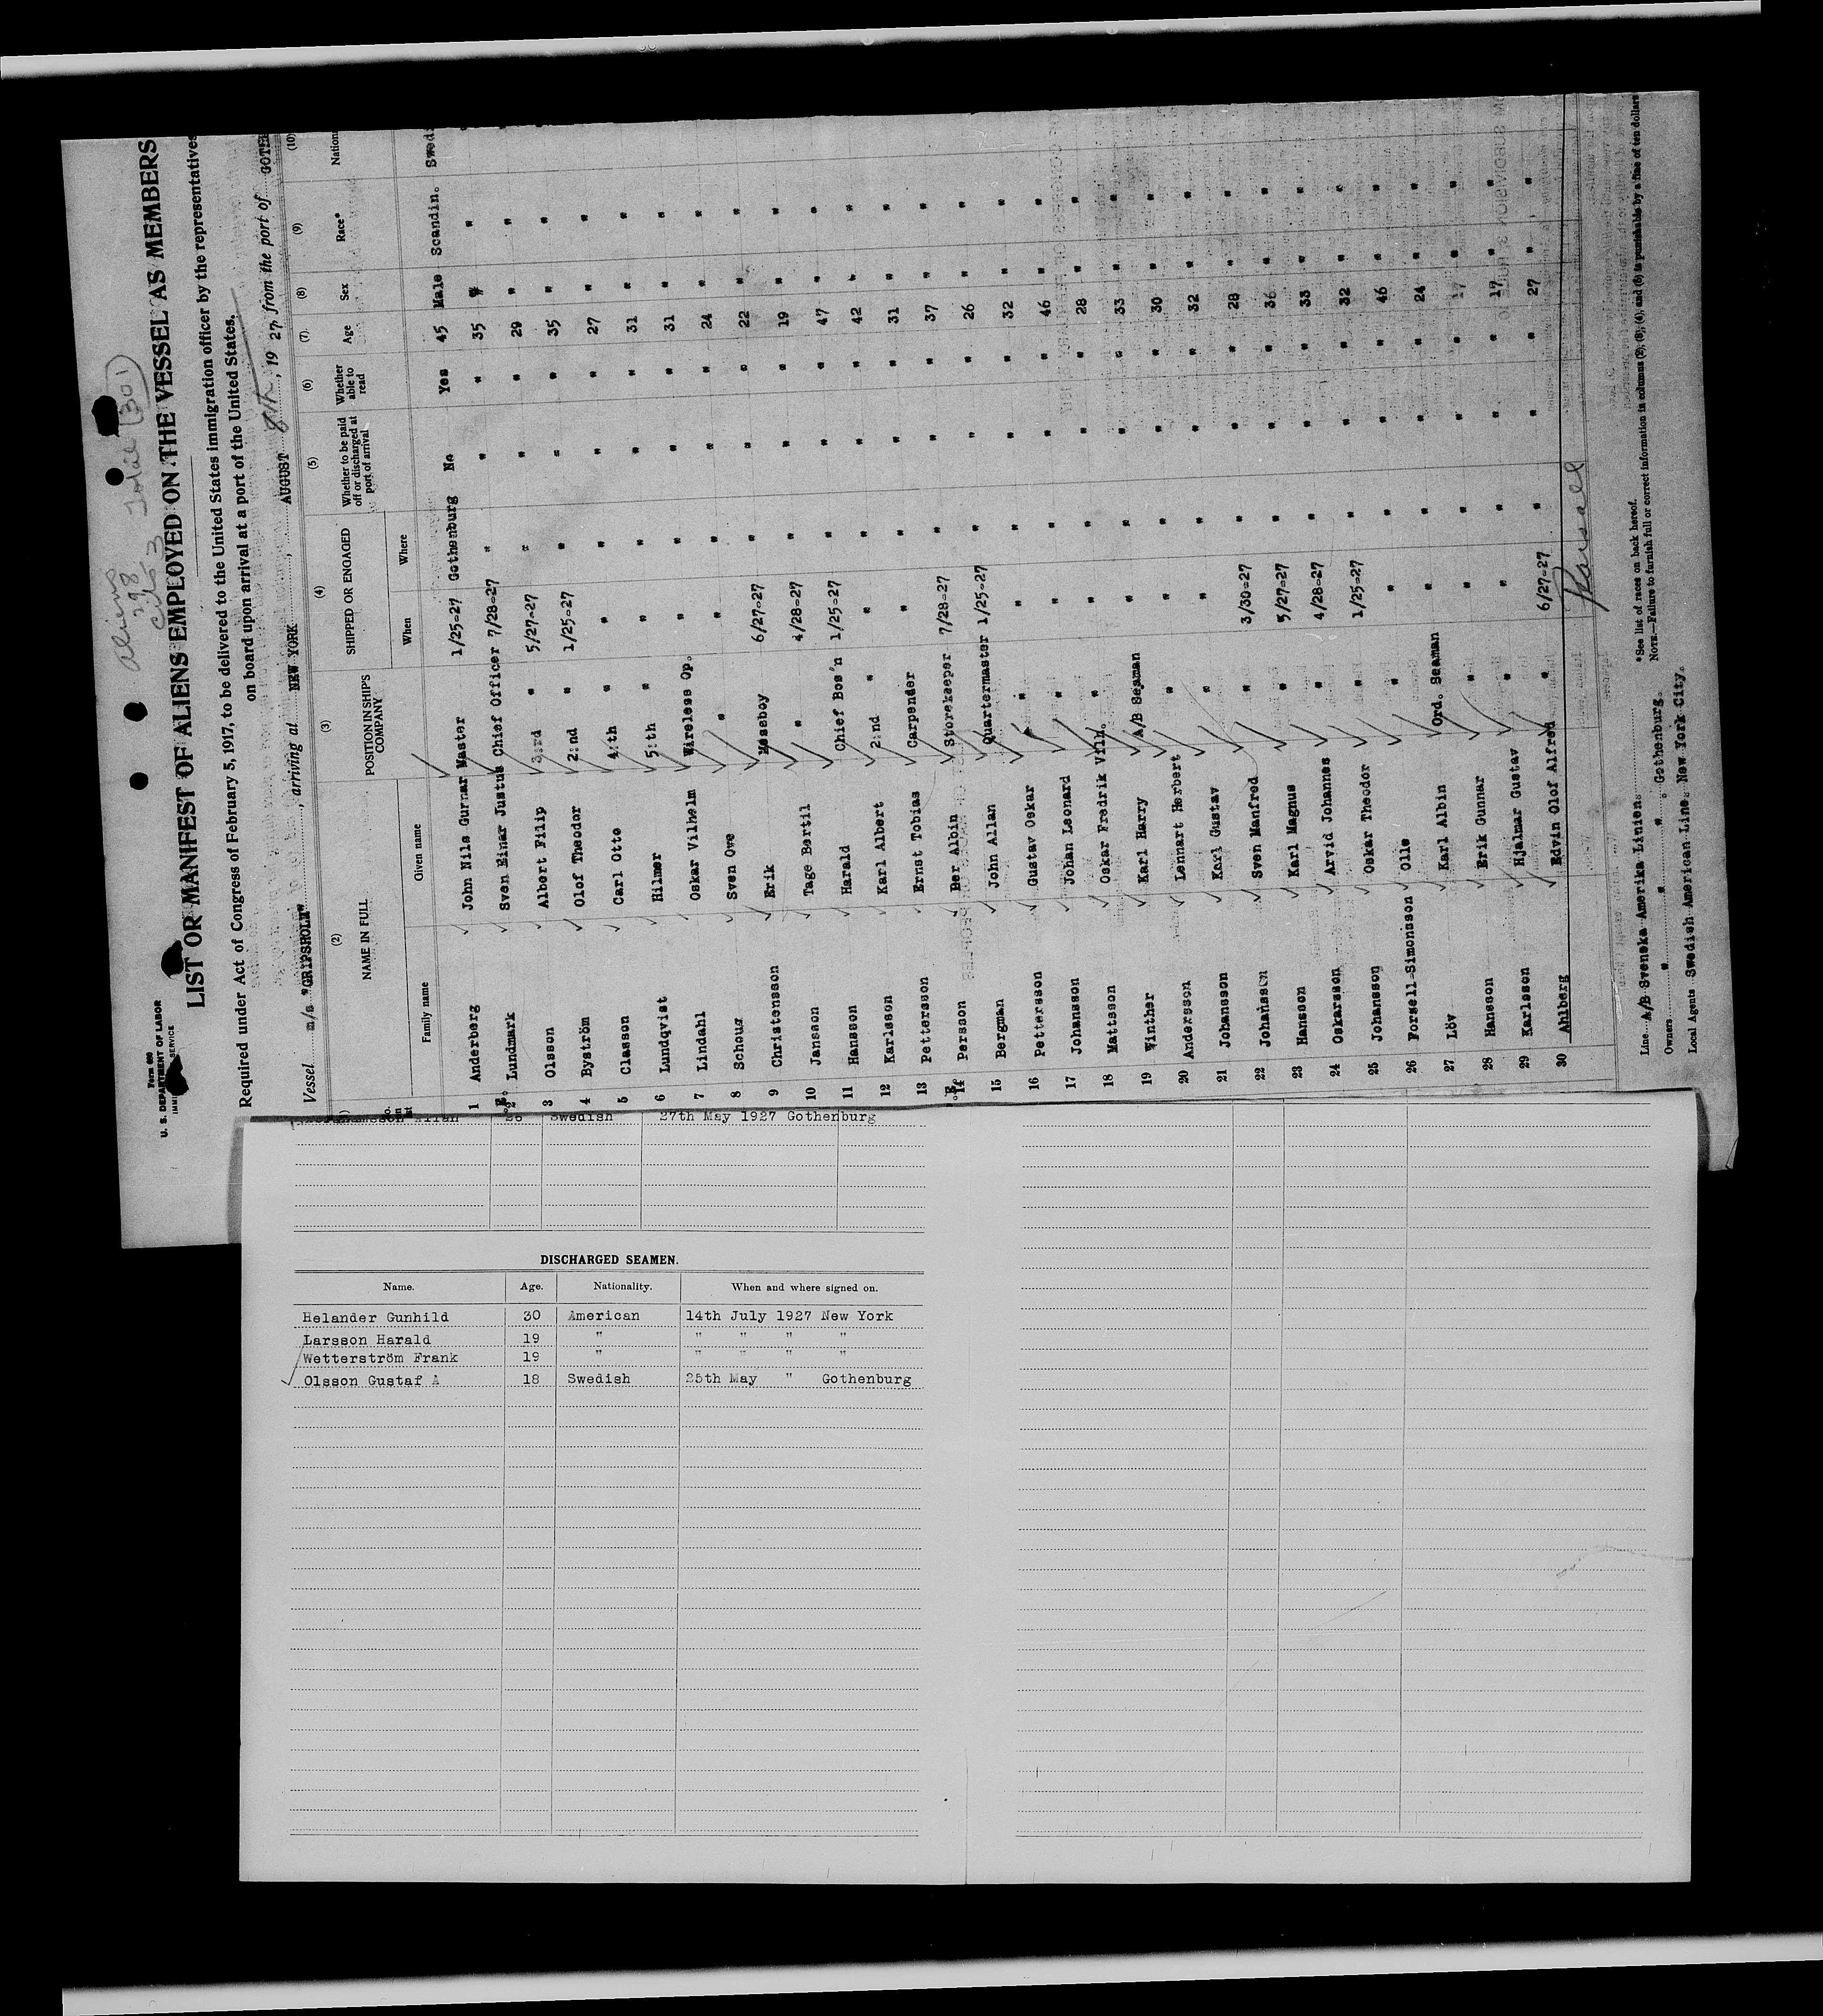 Aliens 298
Cits 3 Total (301)
Form 680
U. S. DEPARTMENT OF LABOR
SERVICE
LIST OR MANIFEST OF ALIENS EMPLOYED ON THE VESSEL AS MEMBERS
Required under Act of Congress of February 5, 1917, to be delivered to the United States immigration officer by the representatives
on board upon arrival at a port of the United States.
Vessel m/s "GRIPSHOLM", arriving at NEW YORK, AUGUST 8th, 19 27, from the port of GOTHE
(2) (3) (4) (5) (6) (7) (8) (9) (10)
NAME IN FULL POSITION IN SHIP'S COMPANY SHIPPED OR ENGAGED Whether to be paid off or discharged at port of arrival Whether able to read Age Sex Race* Nation
Family name Given name When Where
1 Anderberg John Nils Gunnar Master 1/25-27 Gothenburg No Yes 45 Male Scandin. Swed
2 Lundmark Sven Einar Justus Chief Officer 7/28-27 " " " 35 " "
3 Olsson Albert Filip 3:rd " 5/27-27 " " " 29 " "
4 Byström Olof Theodor 2:nd " 1/25-27 " " " 35 " "
5 Classon Carl Otto 4:th " " " " " 27 " "
6 Lundqvist Hilmer 5:th " " " " " 31 " "
7 Lindahl Oskar Vilhelm Wireless Op. " " " " 31 " "
8 Schoug Sven Ove " " " " " 24 " "
9 Christensson Erik Messboy 6/27-27 " " " 22 " "
10 Jansson Tage Bertil " 4/28-27 " " " 19 " "
11 Hansson Harald Chief Bos'n 1/25-27 " " " 47 " "
12 Karlsson Karl Albert 2:nd " " " " " 42 " "
13 Pettersson Ernst Tobias Carpender " " " " 31 " "
14 Persson Per Albin Storekeeper 7/28-27 " " " 37 " "
15 Bergman John Allan Quartermaster 1/25-27 " " " 26 " "
16 Pettersson Gustav Oskar " " " " " 32 " "
17 Johansson Johan Leonard " " " " " 46 " "
18 Mattsson Oskar Fredrik Vilh. " " " " " 28 " "
19 Winther Karl Harry A/B Seaman " " " " 33 " "
20 Andersson Lennart Herbert " " " " " 30 " "
21 Johansson Karl Gustav " " " " " 32 " "
22 Johansson Sven Manfred " 3/30-27 " " " 28 " "
23 Hanson Karl Magnus " 5/27-27 " " " 36 " "
24 Oskarsson Arvid Johannes " 4/28-27 " " " 33 " "
25 Johansson Oskar Theodor " 1/25-27 " " " 32 " "
26 Forsell-Simonsson Olle " " " " " 46 " "
27 Löv Karl Albin Ord. Seaman " " " " 24 " "
28 Hansson Erik Gunnar " " " " " 17 " "
29 Karlsson Hjalmar Gustav " " " " " 17 " "
30 Ahlberg Edvin Olof Alfred " 6/27-27 " " " 27 " "
Line A/B Svenska Amerika Linien.
Owners " " " Gothenburg.
Local Agents Swedish American Line, New York City.
*See list of races on back hereof.
NOTE.—Failure to furnish full or correct information in columns (2), (3), (4), and (5) is punishable by a fine of ten dollars
Swedish 27th May 1927 Gothenburg
DISCHARGED SEAMEN.
Name. Age. Nationality. When and where signed on.
Helander Gunhild 30 American 14th July 1927 New York
Larsson Harald 19 " " " " "
Wetterström Frank 19 " " " " "
Olsson Gustaf A 18 Swedish 25th May " Gothenburg